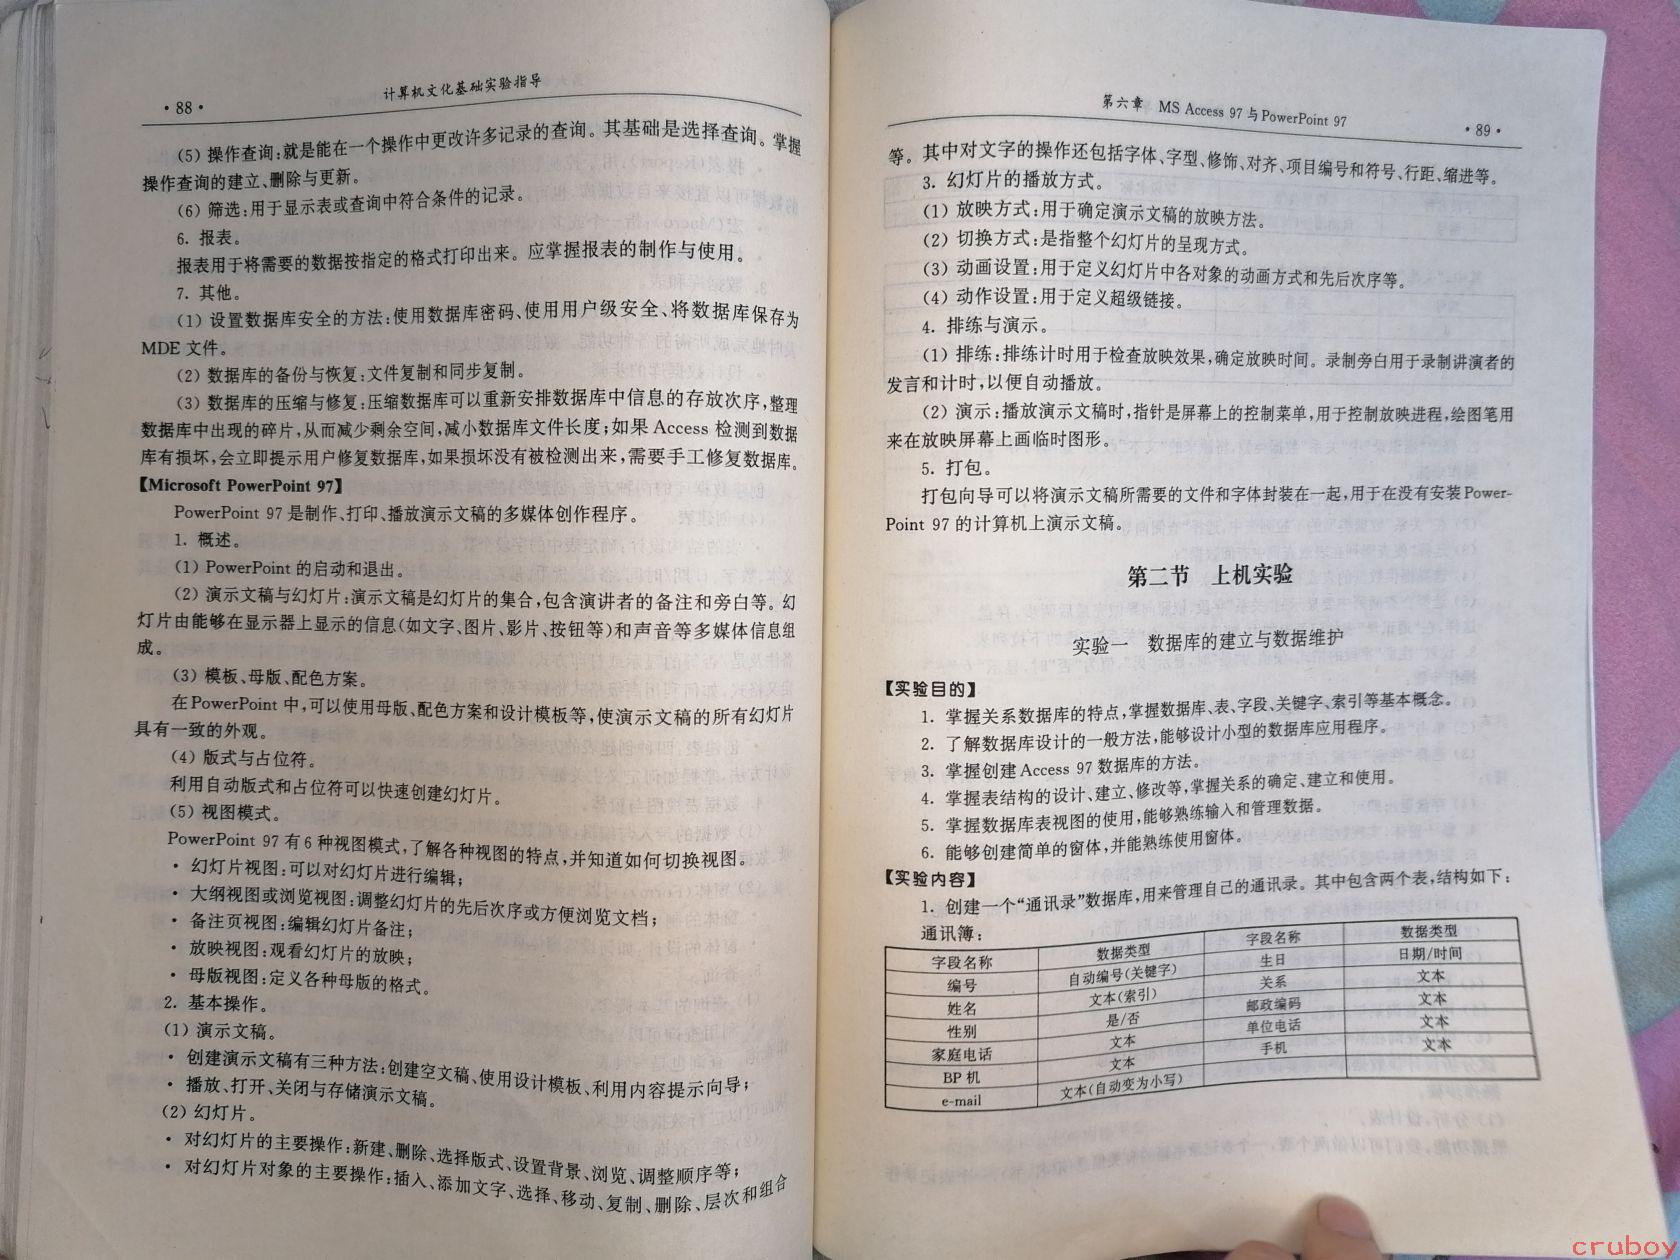 ·88·
计算机文化基础实验指导
(5) 操作查询:就是能在一个操作中更改许多记录的查询。其基础是选择查询。掌握
操作查询的建立、删除与更新。
(6) 筛选:用于显示表或查询中符合条件的记录。
6. 报表。
报表用于将需要的数据按指定的格式打印出来。应掌握报表的制作与使用。
7. 其他。
(1) 设置数据库安全的方法:使用数据库密码、使用用户级安全、将数据库保存为
MDE 文件。
(2) 数据库的备份与恢复:文件复制和同步复制。
(3) 数据库的压缩与修复:压缩数据库可以重新安排数据库中信息的存放次序,整理
数据库中出现的碎片,从而减少剩余空间,减小数据库文件长度;如果 Access 检测到数据
库有损坏,会立即提示用户修复数据库,如果损坏没有被检测出来,需要手工修复数据库。
【Microsoft PowerPoint 97】
PowerPoint 97 是制作、打印、播放演示文稿的多媒体创作程序。
1. 概述。
(1) PowerPoint 的启动和退出。
(2) 演示文稿与幻灯片:演示文稿是幻灯片的集合,包含演讲者的备注和旁白等。幻
灯片由能够在显示器上显示的信息(如文字、图片、影片、按钮等)和声音等多媒体信息组
成。
(3) 模板、母版、配色方案。
在 PowerPoint 中,可以使用母版、配色方案和设计模板等,使演示文稿的所有幻灯片
具有一致的外观。
(4) 版式与占位符。
利用自动版式和占位符可以快速创建幻灯片。
(5) 视图模式。
PowerPoint 97 有 6 种视图模式,了解各种视图的特点,并知道如何切换视图。
· 幻灯片视图:可以对幻灯片进行编辑;
· 大纲视图或浏览视图:调整幻灯片的先后次序或方便浏览文档;
· 备注页视图:编辑幻灯片备注;
· 放映视图:观看幻灯片的放映;
· 母版视图:定义各种母版的格式。
2. 基本操作。
(1) 演示文稿。
· 创建演示文稿有三种方法:创建空文稿、使用设计模板、利用内容提示向导;
· 播放、打开、关闭与存储演示文稿。
(2) 幻灯片。
· 对幻灯片的主要操作:新建、删除、选择版式、设置背景、浏览、调整顺序等;
· 对幻灯片对象的主要操作:插入、添加文字、选择、移动、复制、删除、层次和组合
第六章 MS Access 97 与 PowerPoint 97
·89·
等。其中对文字的操作还包括字体、字型、修饰、对齐、项目编号和符号、行距、缩进等。
3. 幻灯片的播放方式。
(1) 放映方式:用于确定演示文稿的放映方法。
(2) 切换方式:是指整个幻灯片的呈现方式。
(3) 动画设置:用于定义幻灯片中各对象的动画方式和先后次序等。
(4) 动作设置:用于定义超级链接。
4. 排练与演示。
(1) 排练:排练计时用于检查放映效果,确定放映时间。录制旁白用于录制讲演者的
发言和计时,以便自动播放。
(2) 演示:播放演示文稿时,指针是屏幕上的控制菜单,用于控制放映进程,绘图笔用
来在放映屏幕上画临时图形。
5. 打包。
打包向导可以将演示文稿所需要的文件和字体封装在一起,用于在没有安装 Power-
Point 97 的计算机上演示文稿。
第二节 上机实验
实验一 数据库的建立与数据维护
【实验目的】
1. 掌握关系数据库的特点,掌握数据库、表、字段、关键字、索引等基本概念。
2. 了解数据库设计的一般方法,能够设计小型的数据库应用程序。
3. 掌握创建 Access 97 数据库的方法。
4. 掌握表结构的设计、建立、修改等,掌握关系的确定、建立和使用。
5. 掌握数据库表视图的使用,能够熟练输入和管理数据。
6. 能够创建简单的窗体,并能熟练使用窗体。
【实验内容】
1. 创建一个“通讯录”数据库,用来管理自己的通讯录。其中包含两个表,结构如下:
通讯簿:
字段名称 数据类型 字段名称 数据类型
编号 自动编号(关键字) 生日 日期/时间
姓名 文本(索引) 关系 文本
性别 是/否 邮政编码 文本
家庭电话 文本 单位电话 文本
BP 机 文本 手机 文本
e-mail 文本(自动变为小写)
cruboy